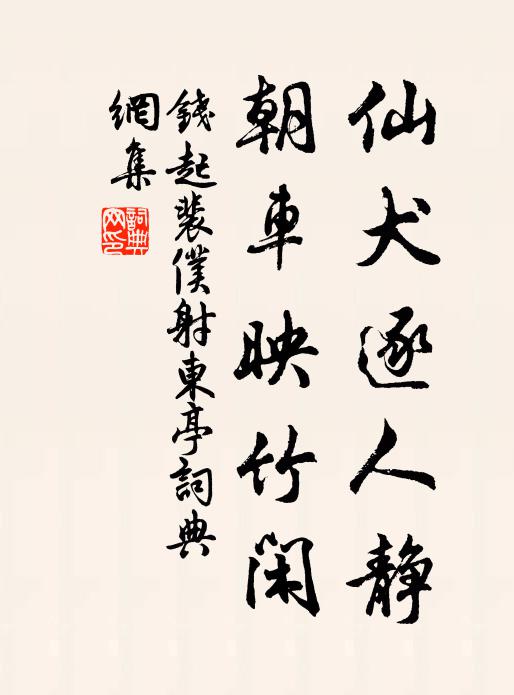 仙犬逐人静
朝車映竹閑
錢起裴僕射東亭詞典
網集
詞典
网印